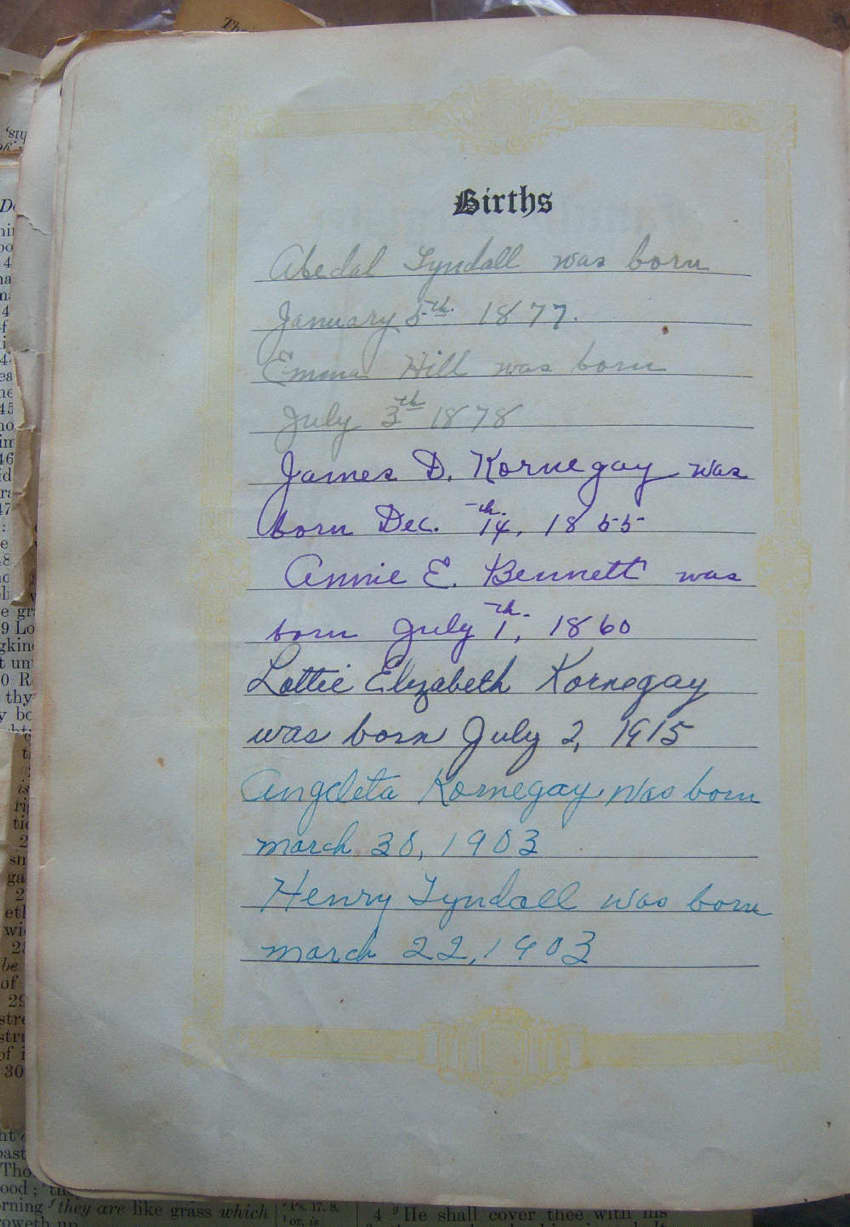 Births
Abedal Tyndall was born
January 5th. 1877.
Emma Hill was born
July 3th 1878
James D. Kornegay was
born Dec. 14th. 1855
Annie E. Bennett was
born July 1th. 1860
Lottie Elizabeth Kornegay
was born July 2, 1915
Angeleta Kornegay was born
march 30, 1903
Henry Tyndall was born
march 22, 1903
they are like grass which
Ps. 17. 8.
or, is
4 He shall cover thee with his